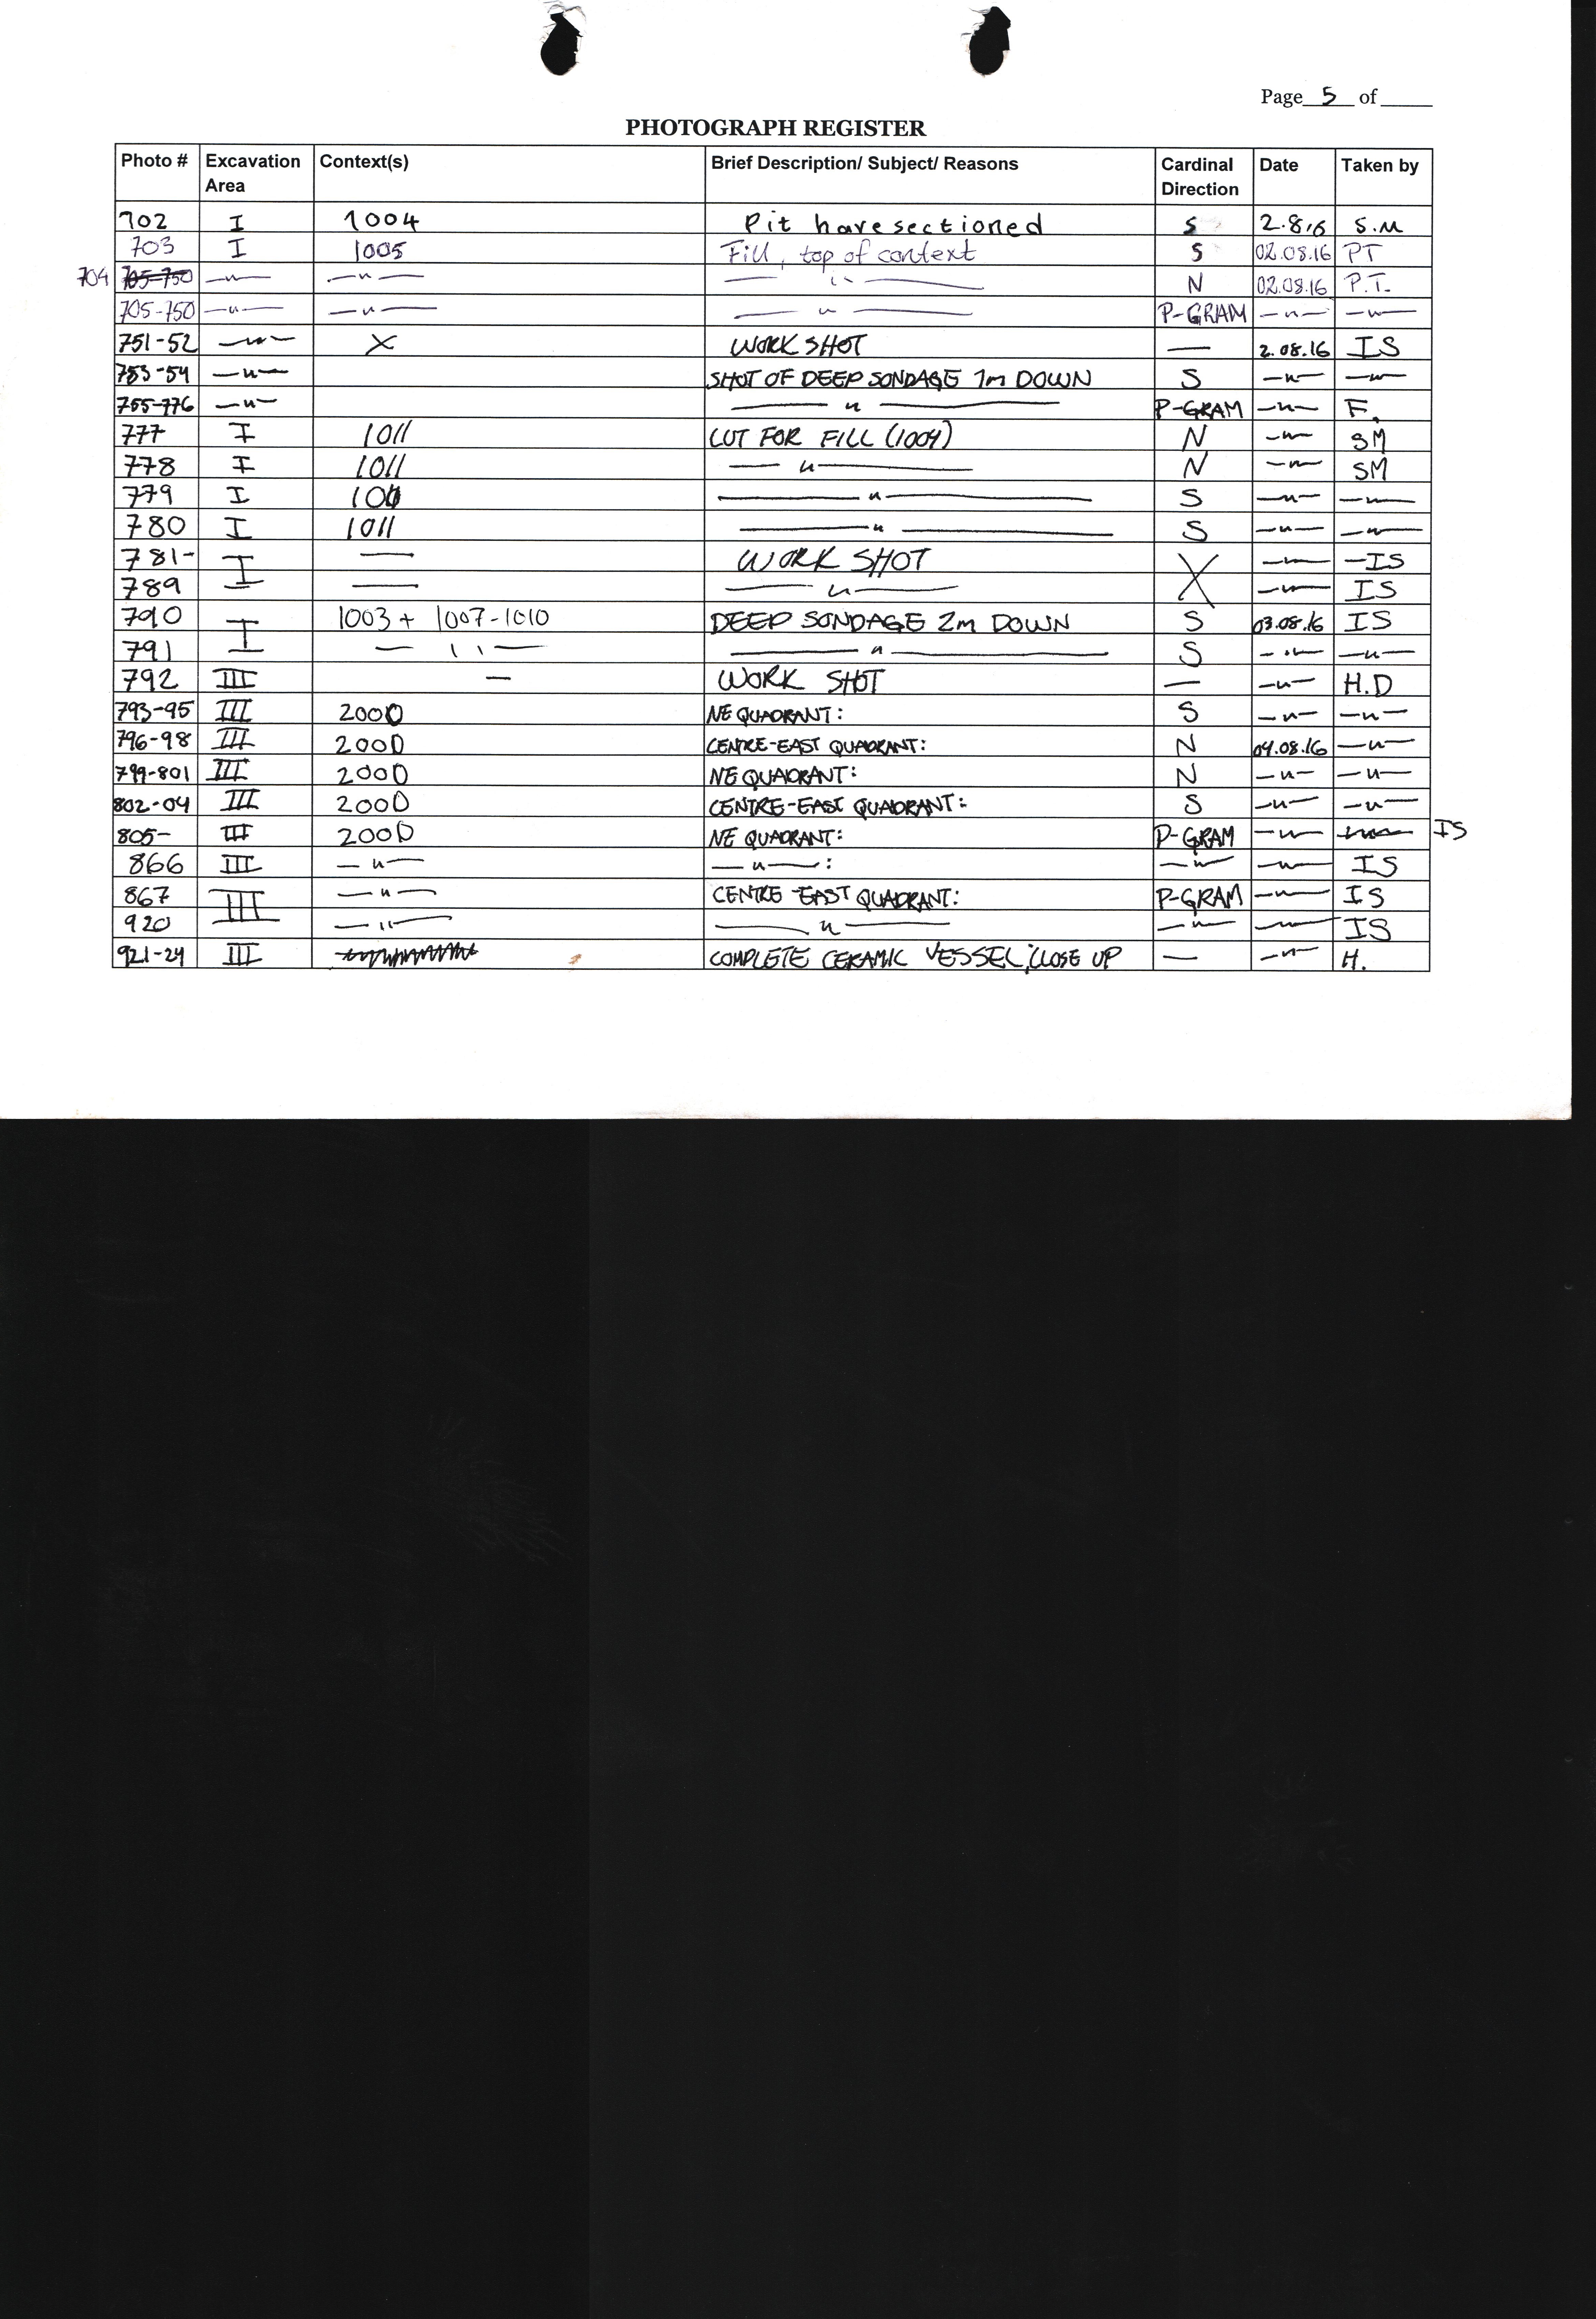 Page 5 of
PHOTOGRAPH REGISTER
Photo # Excavation Area Context(s) Brief Description/ Subject/ Reasons Cardinal Direction Date Taken by
702 I 1004 Pit have sectioned S 2.8.16 S.M
703 I 1005 Fill, top of context S 02.08.16 PT
704 705-750 —"— —"— —"— N 02.08.16 P.T.
705-750 —"— —"— —"— P-GRAM —"— —"—
751-52 —"— X WORK SHOT — 2.08.16 IS
753-54 —"— SHOT OF DEEP SONDAGE 1m DOWN S —"— —"—
755-776 —"— —"— P-GRAM —"— F.
777 I 1011 CUT FOR FILL (1004) N —"— SM
778 I 1011 —"— N —"— SM
779 I 1011 —"— S —"— —"—
780 I 1011 —"— S —"— —"—
781- I — WORK SHOT X —"— —IS
789 — —"— —"— IS
790 I 1003 + 1007-1010 DEEP SONDAGE 2m DOWN S 03.08.16 IS
791 —"— —"— S —"— —"—
792 III — WORK SHOT — —"— H.D
793-95 III 2000 NE QUADRANT: S —"— —"—
796-98 III 2000 CENTRE-EAST QUADRANT: N 04.08.16 —"—
799-801 III 2000 NE QUADRANT: N —"— —"—
802-04 III 2000 CENTRE-EAST QUADRANT: S —"— —"—
805- III 2000 NE QUADRANT: P-GRAM —"— IS
866 III —"— —"—: —"— —"— IS
867 III —"— CENTRE-EAST QUADRANT: P-GRAM —"— IS
920 —"— —"— —"— —"— IS
921-24 III COMPLETE CERAMIC VESSEL; CLOSE UP — —"— H.